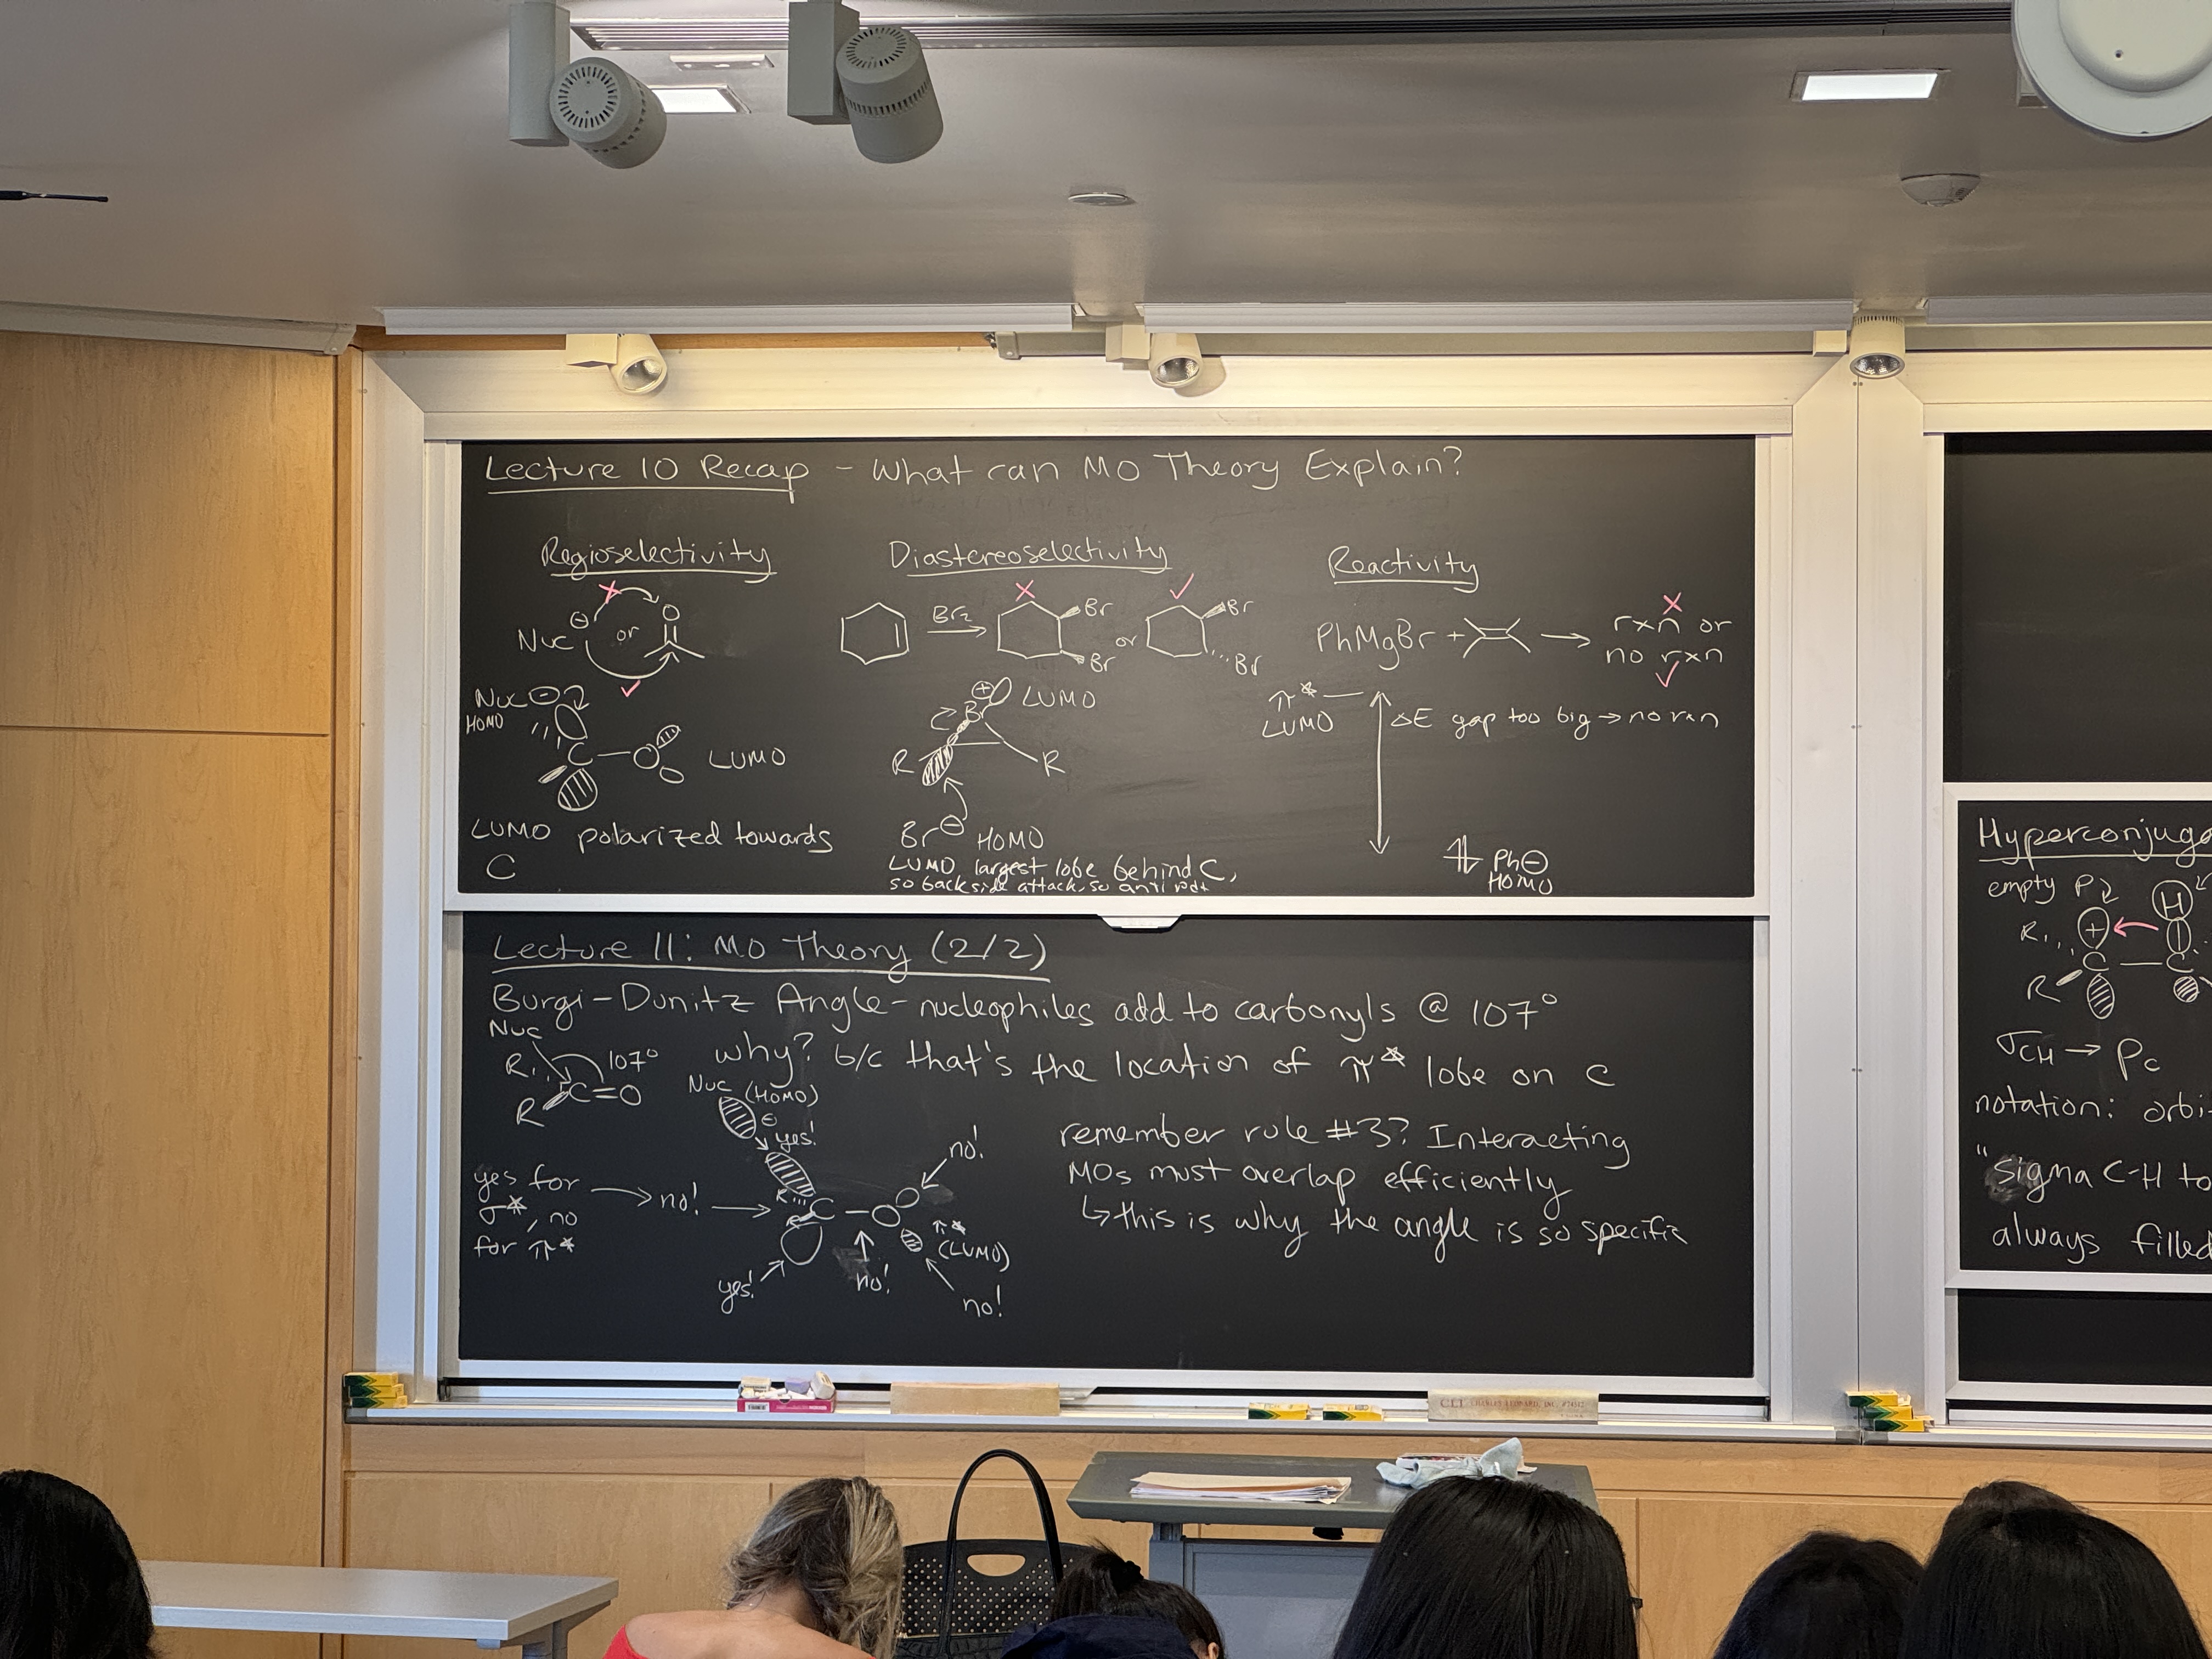 Lecture 10 Recap - What can MO Theory Explain?
Regioselectivity
Nuc ⊖ or O
Nuc ⊖
HOMO
C - O LUMO
LUMO polarized towards
C
Diastereoselectivity
Br2 Br Br or Br Br
⊕ LUMO
Br
R R
Br ⊖ HOMO
LUMO largest lobe behind C,
so backside attack, so anti
Reactivity
PhMgBr + → rxn or
no rxn
π*
LUMO
ΔE gap too big → no rxn
⥮ Ph⊖
HOMO
Lecture 11: MO Theory (2/2)
Burgi-Dunitz Angle - nucleophiles add to carbonyls @ 107°
Nuc
R 107°
R C=O
why? b/c that's the location of π* lobe on C
Nuc (HOMO)
⊖
yes!
no!
yes for
σ*, no
for π*
→ no! →
R
R C - O
π*
(LUMO)
yes!
no!
no!
remember rule #3? Interacting
MOs must overlap efficiently
↳ this is why the angle is so specific
Hyperconjuga
empty P
H
R +
C - C
R
σCH → Pc
notation: orbi
"sigma C-H to
always filled